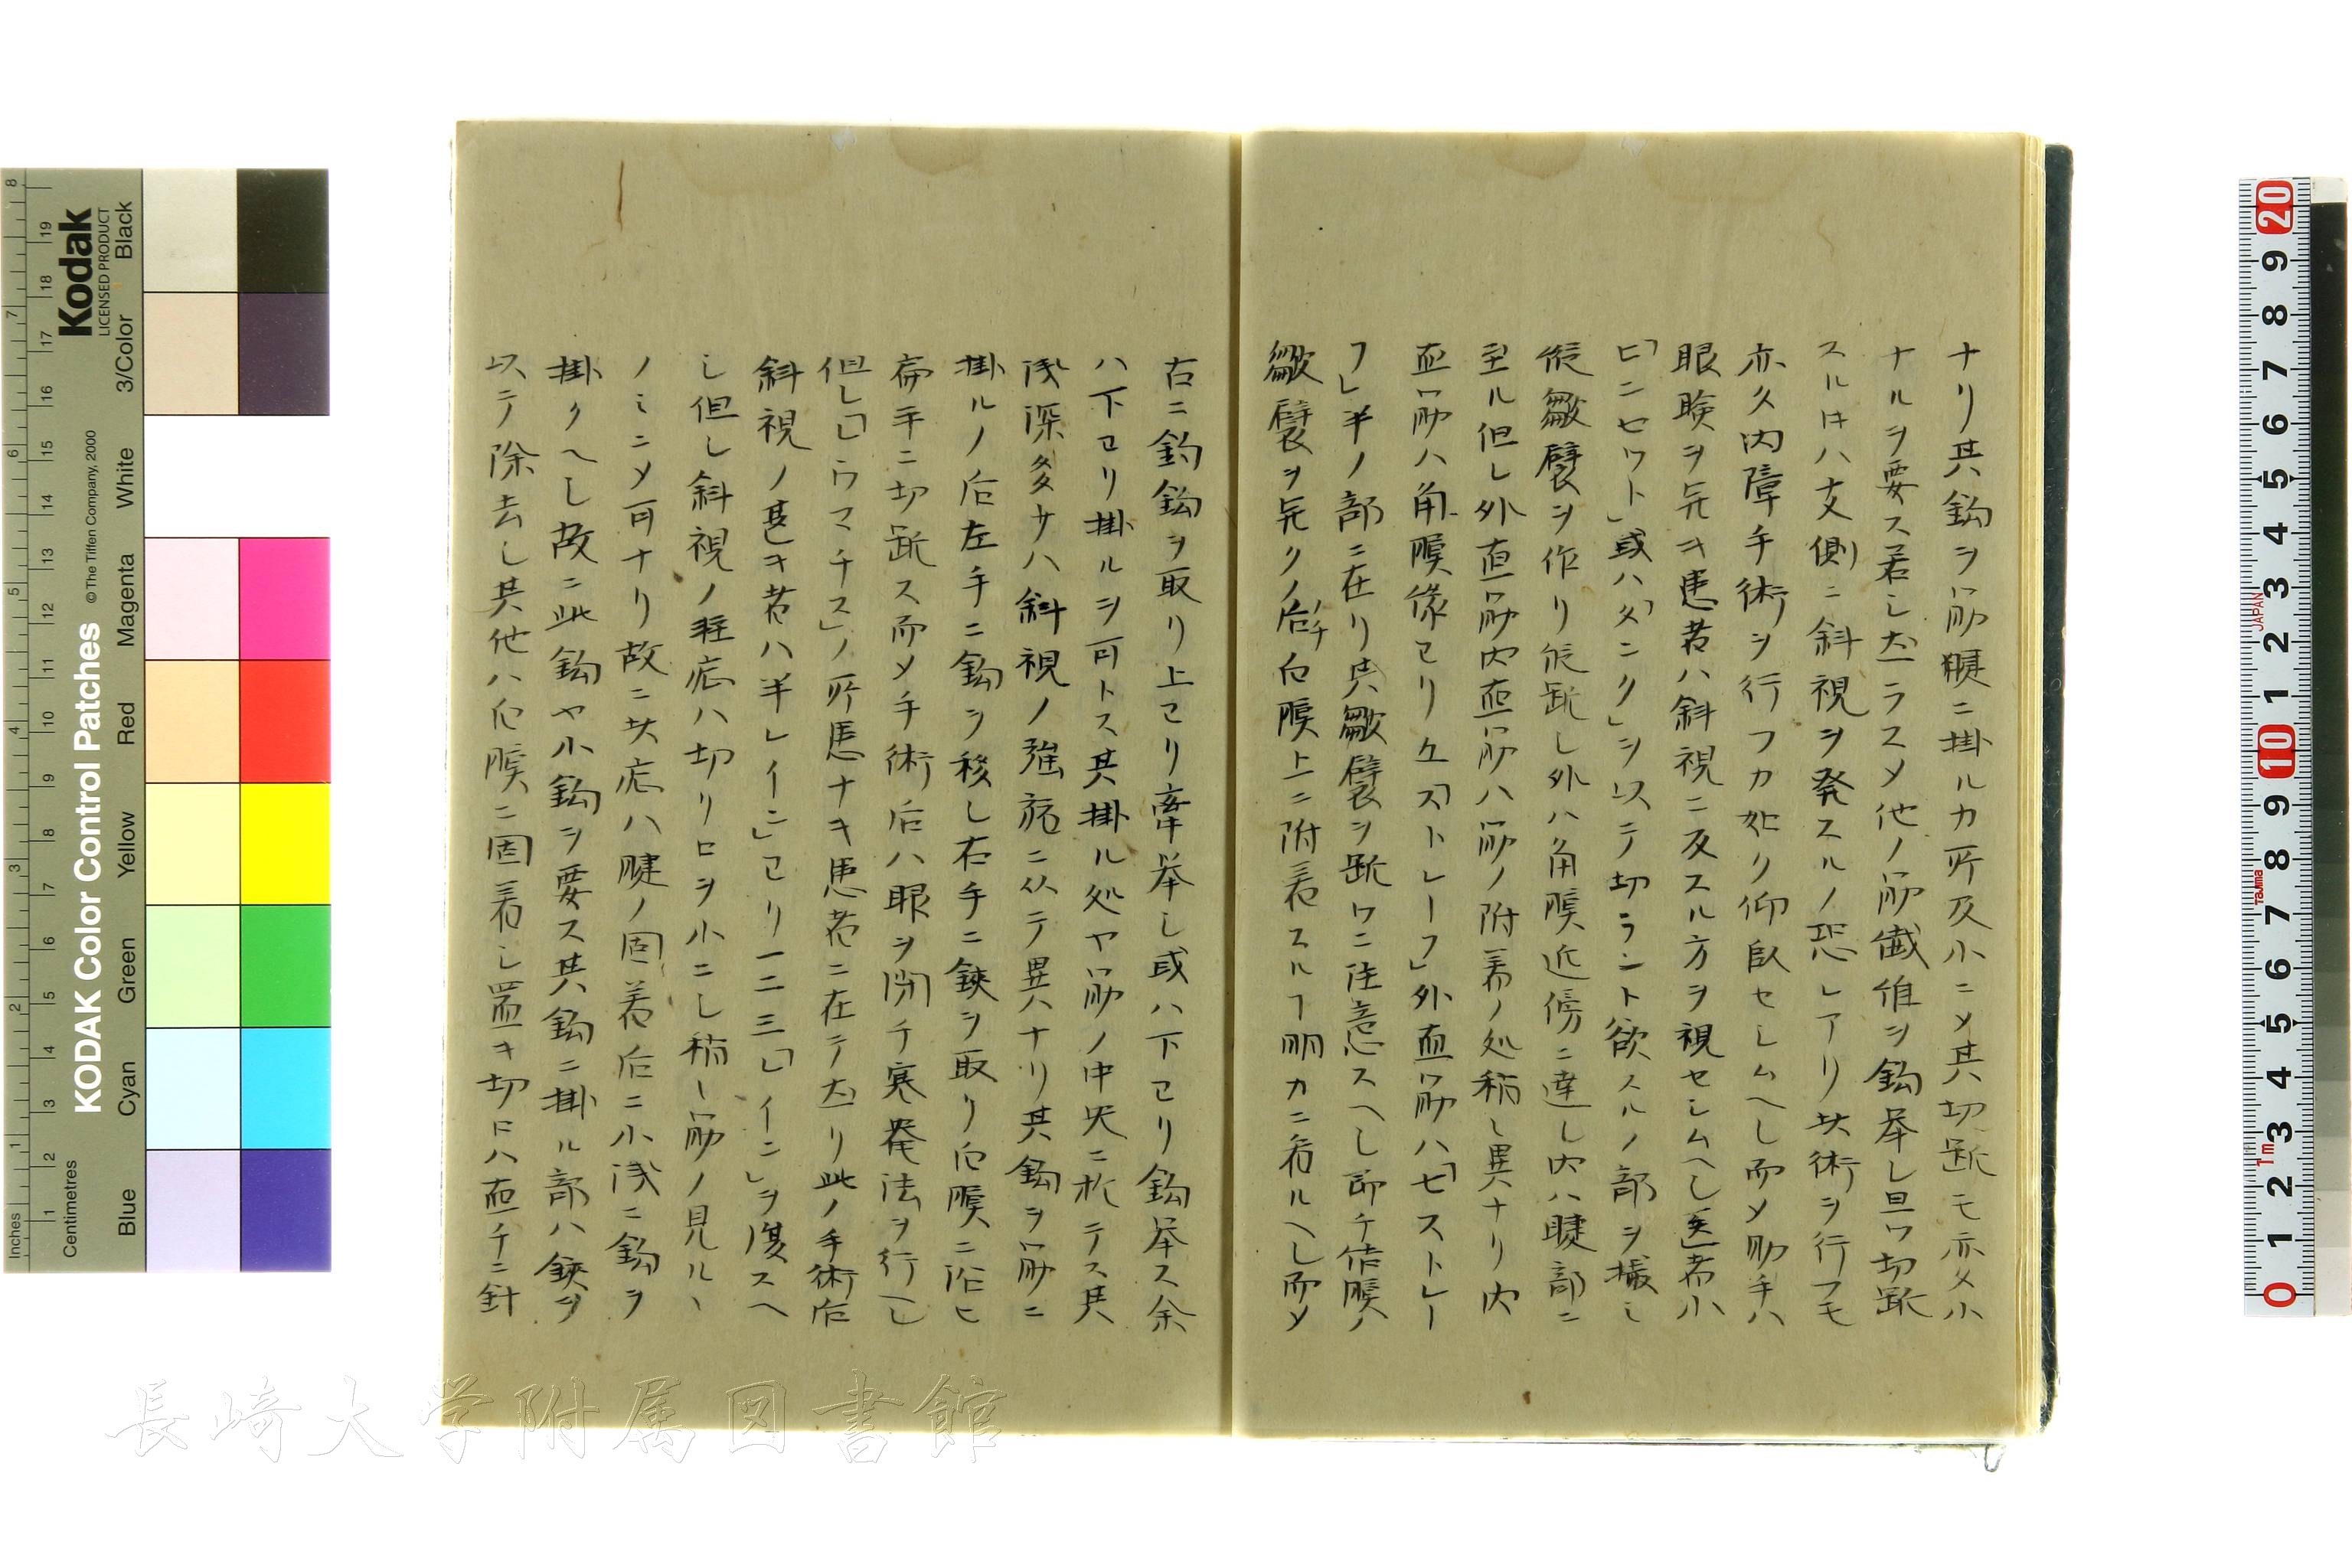 ナリ其鈎ヲ筋腱ニ掛ルカ所及小ニ〆其切断モ亦タ小
ナルヲ要ス若シ左ラスメ他ノ筋繊維ヲ鈎挙シ且ツ切断
スルキハ支側ニ斜視ヲ発スルノ恐レアリ其術ヲ行フモ
亦久内障手術ヲ行フカ如ク仰臥セシムヘシ而〆助手ハ
眼瞼ヲ先キ患者ハ斜視ニ反スル方ヲ視セシムヘシ医者小
「ヒンセット」或ハ「タンク」ヲ以テ切ラント欲スルノ部ヲ撮シ
縦皺襞ヲ作リ縦断シ外ハ角膜近傍ニ達シ内ハ腱部ニ
至ル但シ外直筋内直筋ハ筋ノ附着ノ処稍し異ナリ内
直筋ハ角膜縁ヨリ
外直筋ハ
ノ部ニ在リ其皺襞ヲ断ツニ注意スヘシ即チ結膜ノ
皺襞ヲ先クノ后チ白膜上ニ附着スルヿ明カニ着ルヘシ而〆
右ニ鈎鈎ヲ取リ上ヨリ牽挙シ或ハ下ヨリ鈎挙ス余
ハ下ヨリ掛ルヲ可トス其掛ル処ヤ筋ノ中央ニ於テス其
浅深多少ハ斜視ノ強弱ニ从テ異ハナリ其鈎ヲ筋ニ
掛ルノ后左手ニ鈎ヲ移シ右手ニ鋏ヲ取リ白膜ニ沿ヒ
扁平ニ切断ス而〆手術后ハ眼ヲ閉チ寒罨法ヲ行ヘシ
但シ「レウマチス」ノ所患ナキ患者ニ在テ左リ此ノ手術后
斜視ノ甚キ者ハ半「レイニ」ヨリ一二三「レイニ」ヲ復スヘ
シ但シ斜視ノ軽症ハ切リ口ヲ小ニシ稍ー筋ノ見ルヽ
ノミニ〆可ナリ故ニ其症ハ腱ノ固着后ニ小浅ニ鈎ヲ
掛クヘシ故ニ此鈎ヤ小鈎ヲ要ス其鈎ニ掛ル部ハ鋏ヲ
以テ除去シ其他ハ白膜ニ固着シ置キ切口ハ直チニ針
Kodak
LICENSED PRODUCT
KODAK Color Control Patches
© The Tiffen Company, 2000
Inches
Centimetres
Blue
Cyan
Green
Yellow
Red
Magenta
White
3/Color
Black
JAPAN
Tajima
長崎大学附属図書館